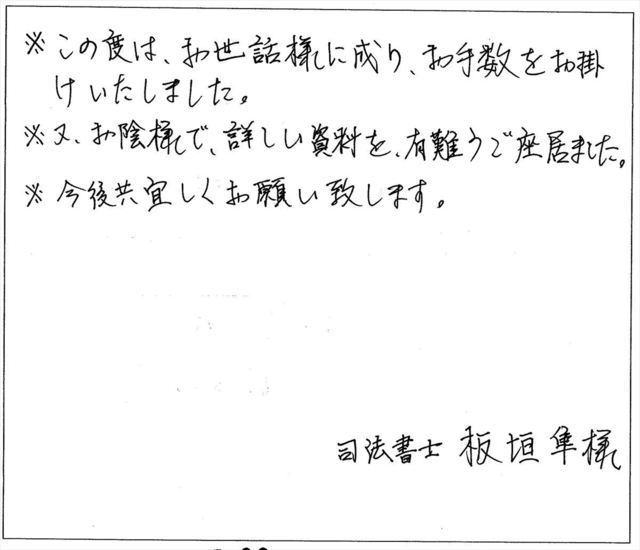 ※この度は、お世話様に成り、お手数をお掛
けいたしました。
※又、お陰様で、詳しい資料を、有難うご座居ました。
※今後共宜しくお願い致します。
司法書士 板垣隼様